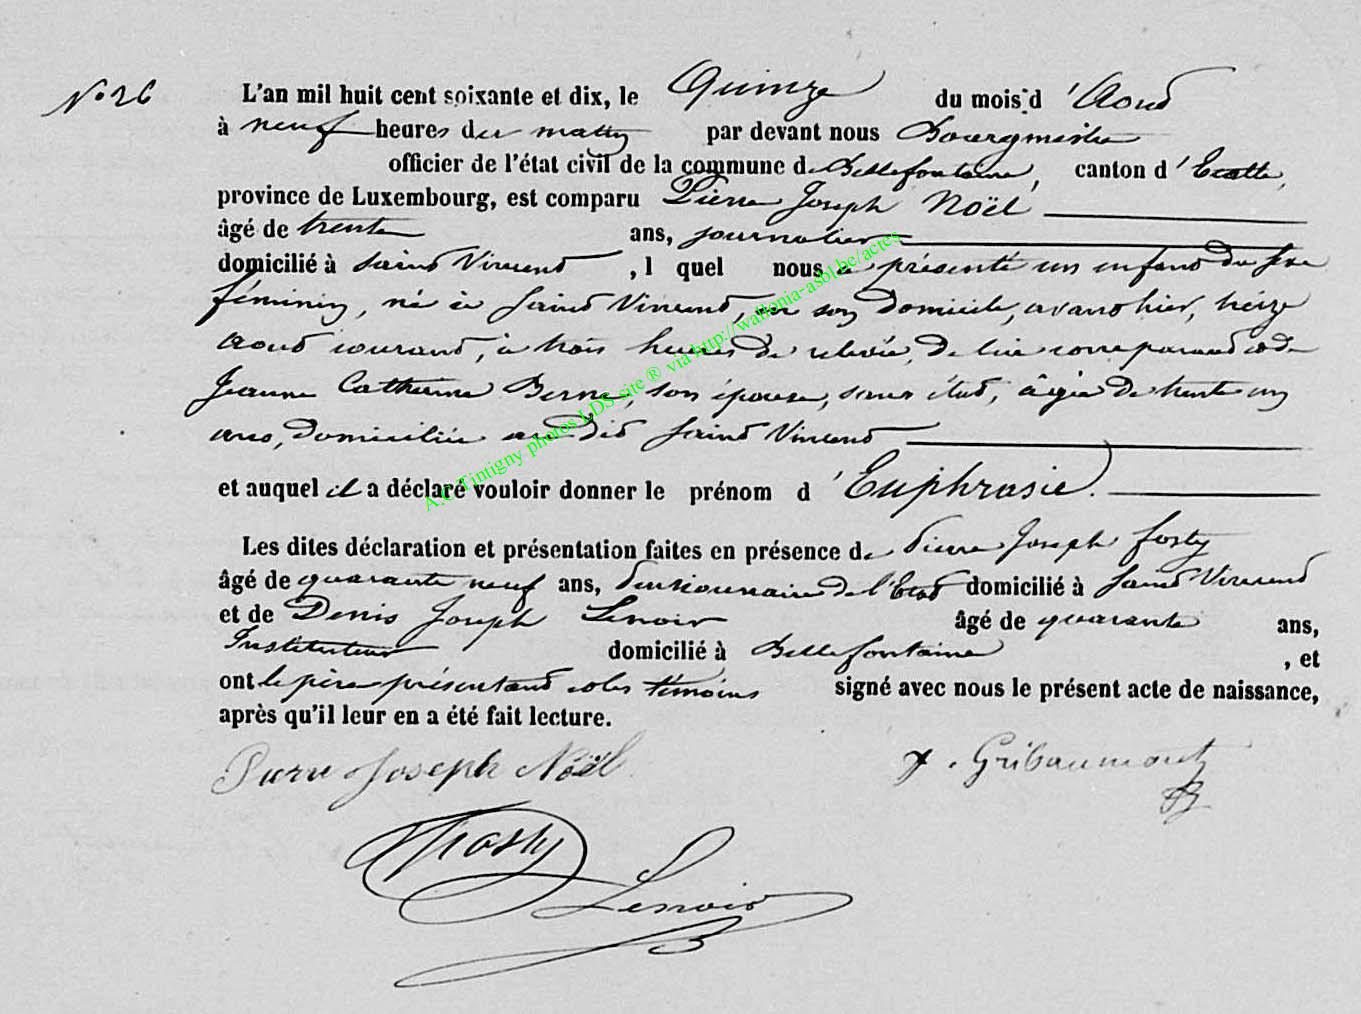 N° 26
L'an mil huit cent soixante et dix, le Quinze du mois d'Aout
à neuf heures du matin par devant nous Bourgmestre
officier de l'état civil de la commune de Bellefontaine, canton d'Etalle,
province de Luxembourg, est comparu Pierre Joseph Noël
âgé de trente ans, journalier
domicilié à Saint Vincent, l quel nous a présenté un enfant du sexe
féminin, né à Saint Vincent, en son domicile, avant hier, treize
aout courant, à trois heures de relevée, de lui comparant et de
Jeanne Catherine Berne, son épouse, sans état, âgée de trente un
ans, domiciliée au dit Saint Vincent
et auquel il a déclaré vouloir donner le prénom d'Euphrasie.
Les dites déclaration et présentation faites en présence de Pierre Joseph Fosty
âgé de quarante neuf ans, pensionnaire de l'Etat domicilié à Saint Vincent
et de Denis Joseph Lenoir âgé de quarante ans,
Instituteur domicilié à Bellefontaine, et
ont le père présentant et les témoins signé avec nous le présent acte de naissance,
après qu'il leur en a été fait lecture.
Pierre Joseph Noël Gribaumont
Fosty
Lenoir
A.C. Tintigny photos LDS site ® via http://wallonia-asbl.be/actes